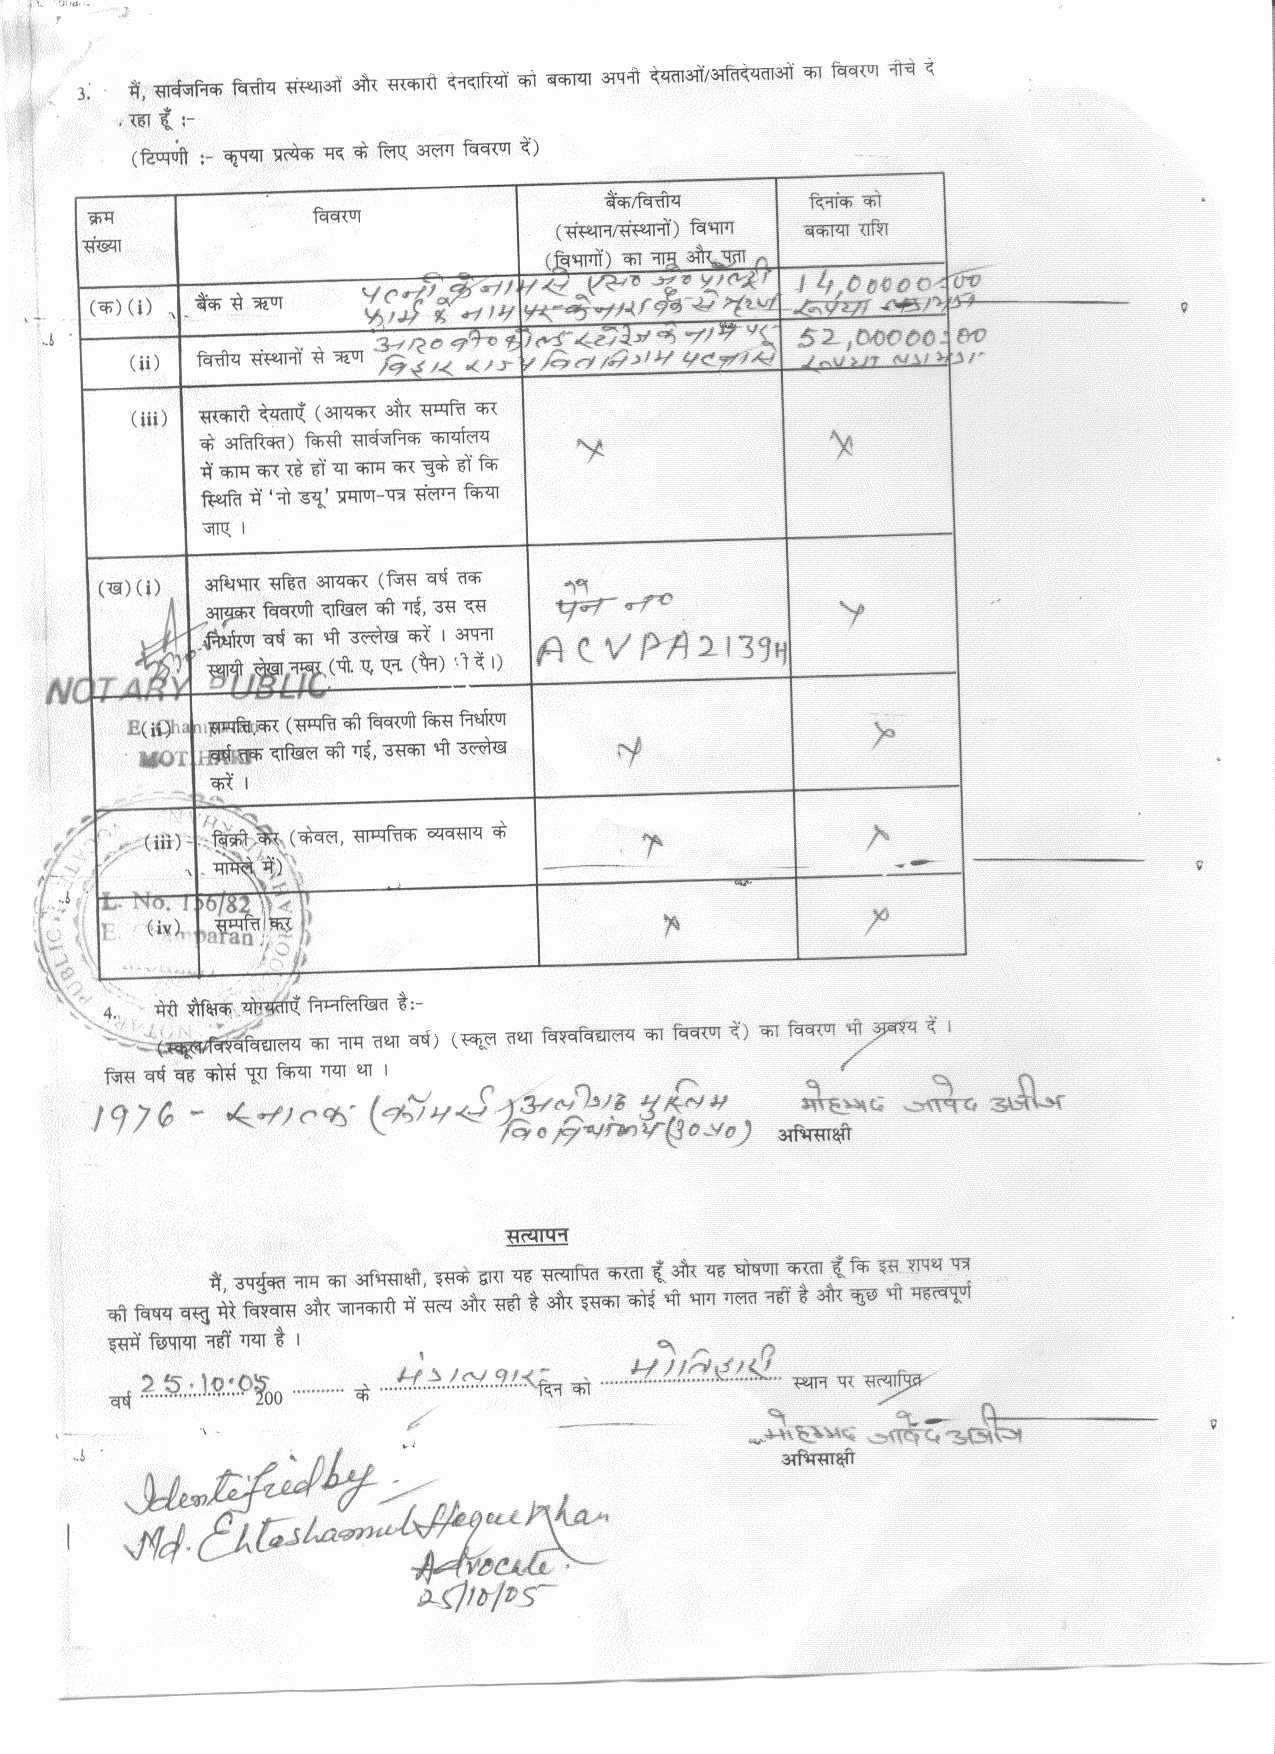 3. मैं, सार्वजनिक वित्तीय संस्थाओं और सरकारी देनदारियों को बकाया अपनी देयताओं/अतिदेयताओं का विवरण नीचे दे
रहा हूँ :-
(टिप्पणी :- कृपया प्रत्येक मद के लिए अलग विवरण दें)
क्रम
संख्या
विवरण
बैंक/वित्तीय
(संस्थान/संस्थानों) विभाग
(विभागों) का नाम और पता
दिनांक को
बकाया राशि
(क)(i) बैंक से ऋण
पत्नी के नाम से एस० जे० पोल्ट्री
फार्म के नाम पर केनारा बैंक से ऋण
14,00000=00
रूपया लगभग
(ii) वित्तीय संस्थानों से ऋण
आर० बी० कोल्ड स्टोरेज के नाम पर
बिहार राज्य वित निगम पटना से
52,00000=00
रूपया लगभग
(iii) सरकारी देयताएँ (आयकर और सम्पत्ति कर
के अतिरिक्त) किसी सार्वजनिक कार्यालय
में काम कर रहे हों या काम कर चुके हों कि
स्थिति में 'नो डयू' प्रमाण-पत्र संलग्न किया
जाए ।
x x
(ख)(i) अधिभार सहित आयकर (जिस वर्ष तक
आयकर विवरणी दाखिल की गई, उस दस
निर्धारण वर्ष का भी उल्लेख करें । अपना
स्थायी लेखा नम्बर (पी. ए, एन. (पैन) भी दें।)
पैन न०
ACVPA2139H
x
NOTARY PUBLIC
E. Champaran
MOTIHARI
(ii) सम्पत्ति कर (सम्पत्ति की विवरणी किस निर्धारण
वर्ष तक दाखिल की गई, उसका भी उल्लेख
करें ।
x x
(iii) बिक्री कर (केवल, साम्पत्तिक व्यवसाय के
मामले में)
x x
L. No. 156/82
E. Champaran
(iv) सम्पत्ति कर
x x
4. मेरी शैक्षिक योग्यताएँ निम्नलिखित है:-
(स्कूल/विश्वविद्यालय का नाम तथा वर्ष) (स्कूल तथा विश्वविद्यालय का विवरण दें) का विवरण भी अवश्य दें ।
जिस वर्ष वह कोर्स पूरा किया गया था ।
1976 - स्नातक (कॉमर्स) अलीगढ मुस्लिम
वि० विद्यालय (उ०प्र०)
मोहम्मद जावेद अजीज
अभिसाक्षी
सत्यापन
मैं, उपर्युक्त नाम का अभिसाक्षी, इसके द्वारा यह सत्यापित करता हूँ और यह घोषणा करता हूँ कि इस शपथ पत्र
की विषय वस्तु मेरे विश्वास और जानकारी में सत्य और सही है और इसका कोई भी भाग गलत नहीं है और कुछ भी महत्वपूर्ण
इसमें छिपाया नहीं गया है ।
वर्ष 25.10.05 200 .......... के मंगलवार दिन को मोतिहारी स्थान पर सत्यापित
मोहम्मद जावेद अजीज
अभिसाक्षी
Identified by
Md. Ehtashamul Haque Khan
Advocate.
25/10/05